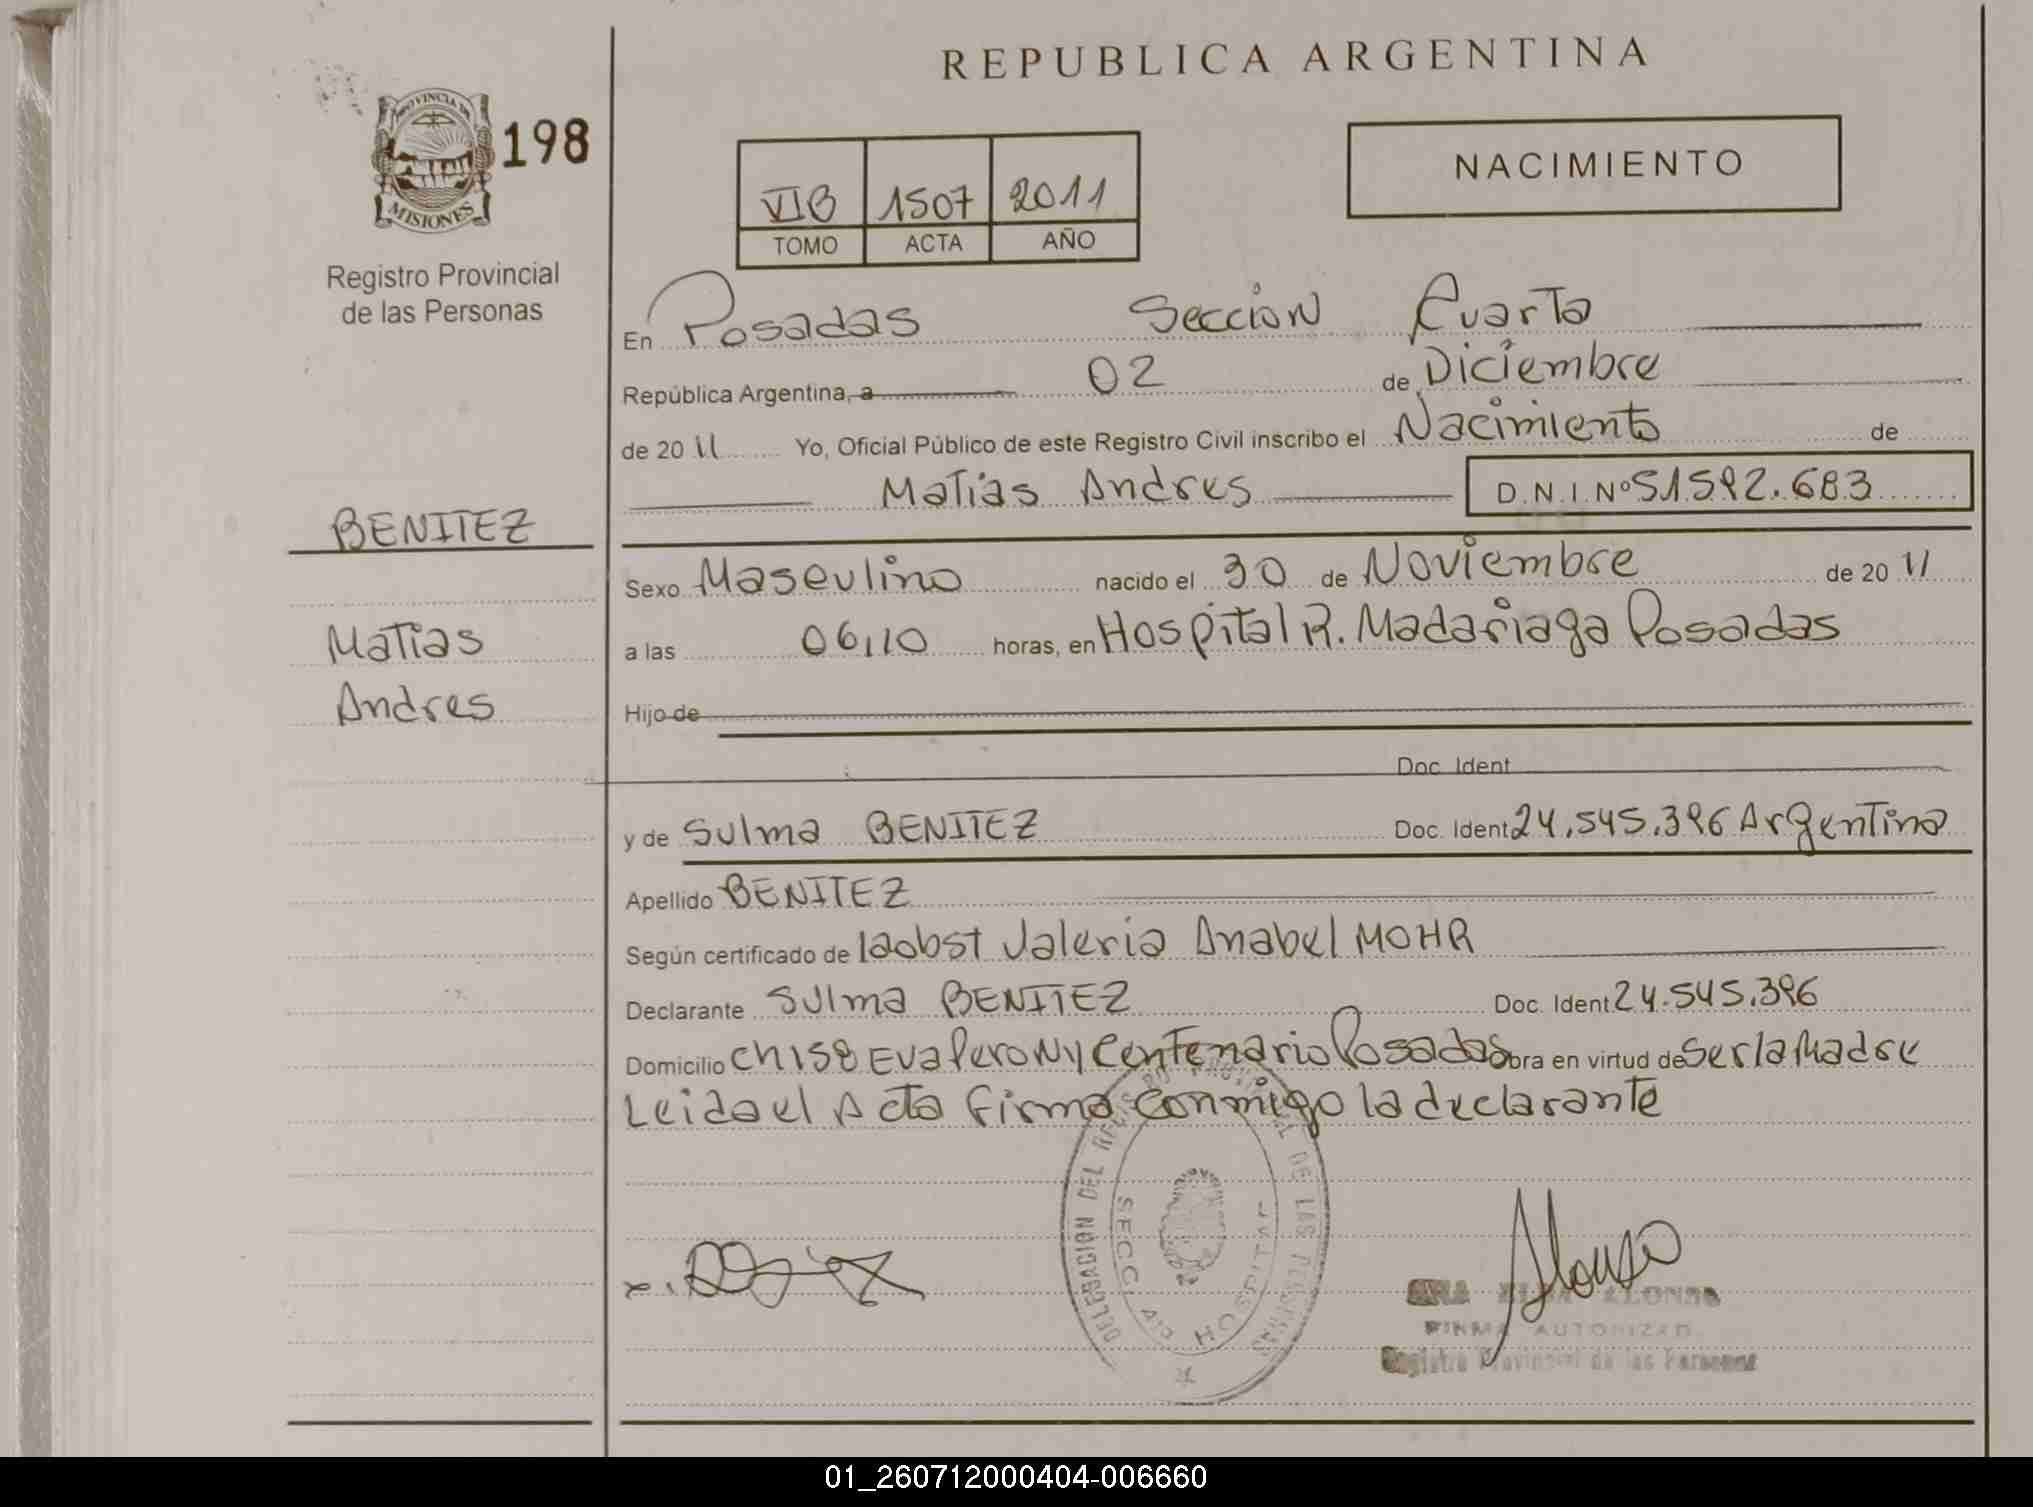 REPUBLICA ARGENTINA
PROVINCIA DE
MISIONES
198
Registro Provincial
de las Personas
VIB 1507 2011
TOMO ACTA AÑO
NACIMIENTO
En Posadas Sección Cuarta
República Argentina, a 02 de Diciembre
de 2011 Yo, Oficial Público de este Registro Civil inscribo el Nacimiento de
Matias Andres D.N.I. Nº 51.592.683
BENITEZ
Matias
Andres
Sexo Masculino nacido el 30 de Noviembre de 2011
a las 06,10 horas, en Hospital R. Madariaga Posadas
Hijo de
Doc. Ident
y de Sulma BENITEZ Doc. Ident 24.545.396 Argentina
Apellido BENITEZ
Según certificado de Iaobst Valeria Anabel MOHR
Declarante Sulma BENITEZ Doc. Ident 24.545.396
Domicilio Ch 158 Eva Peron y Centenario Posadas obra en virtud de ser la Madre
Leida el Acta firma conmigo la declarante
DELEGACION DEL REGISTRO PROVINCIAL DE LAS PERSONAS
SECCION HOSPITAL
Alonso
SRA ELBA ALONSO
FIRMA AUTORIZAD
Registro Provincial de las Personas
01_260712000404-006660